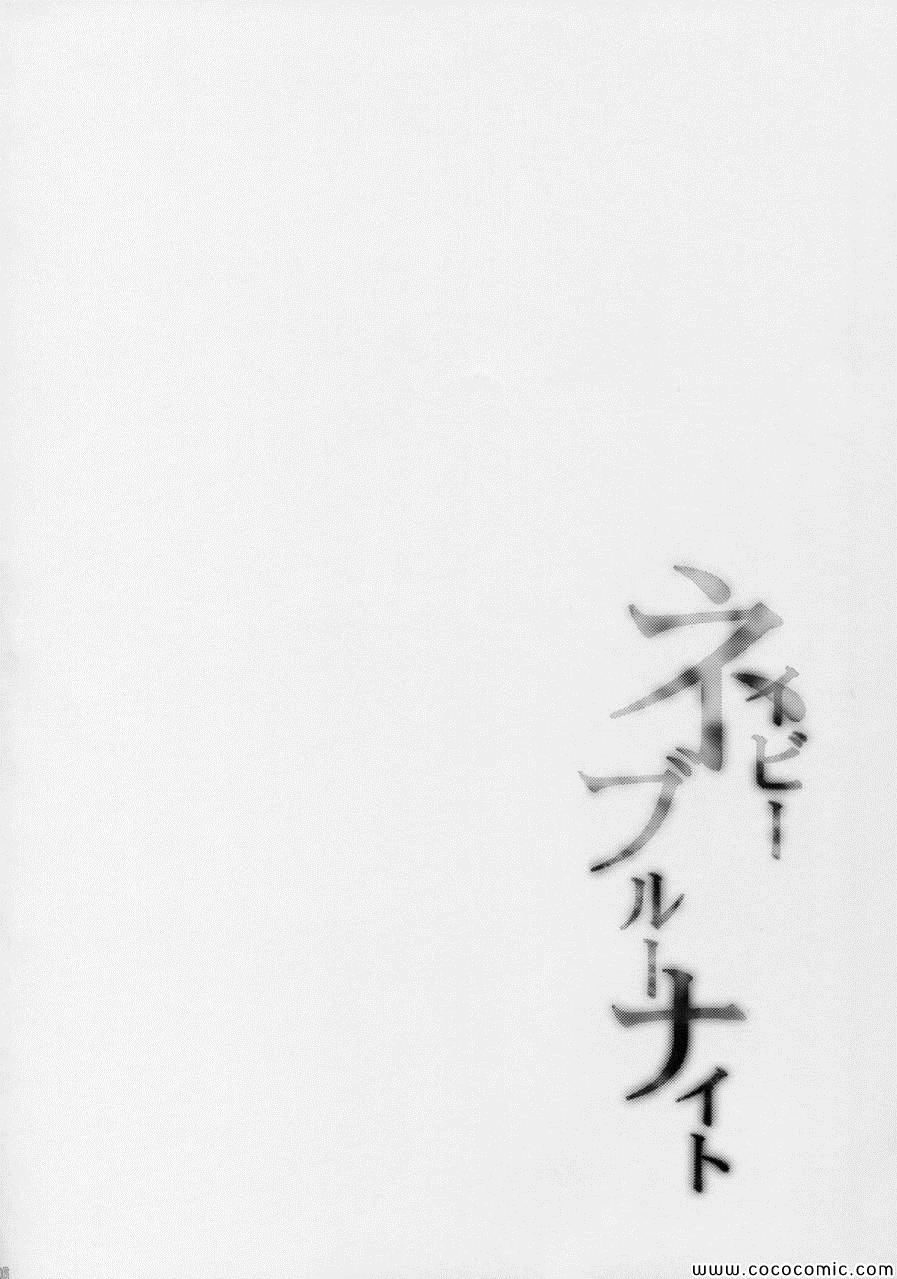 ネイビー
ブルー
ナイト
www.cococomic.com